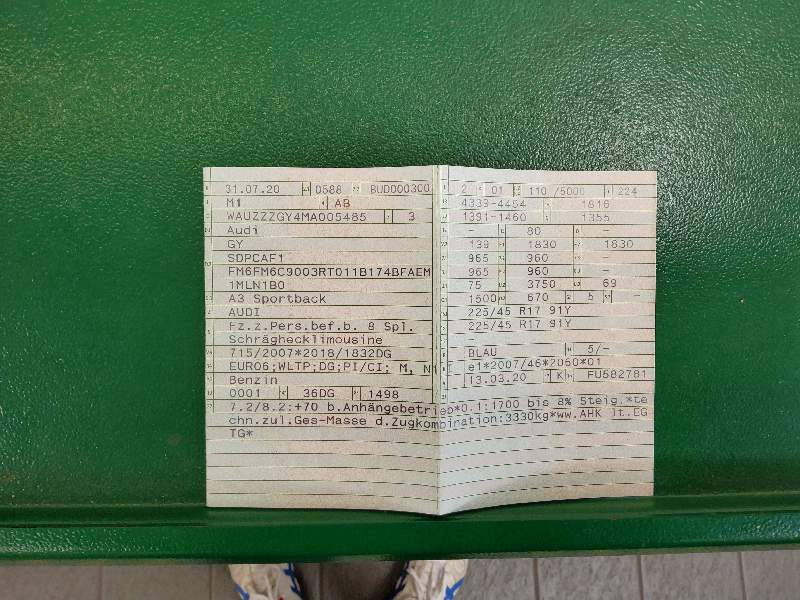 31.07.20 0588 BUD000300
M1 AB
WAUZZZGY4MA005485 3
Audi
GY
SDPCAF1
FM6FM6C9003RT011B174BFAEM
1MLN1B0
A3 Sportback
AUDI
Fz.z.Pers.bef.b. 8 Spl.
Schräghecklimousine
715/2007*2018/1832DG
EURO6;WLTP;DG;PI/CI; M, N1 I
Benzin
0001 36DG 1498
7.2/8.2:+70 b.Anhängebetrieb*0.1:1700 bis 8% Steig.*te
chn.zul.Ges-Masse d.Zugkombination:3330kg*ww.AHK lt.EG
TG*
2 01 110 /5000 224
4339-4454 1816
1391-1460 1355
- 80 -
139 1830 1830
965 960 -
965 960 -
75 3750 69
1500 670 5 -
225/45 R17 91Y
225/45 R17 91Y
-
BLAU 5/-
e1*2007/46*2060*01
13.03.20 K FU582781